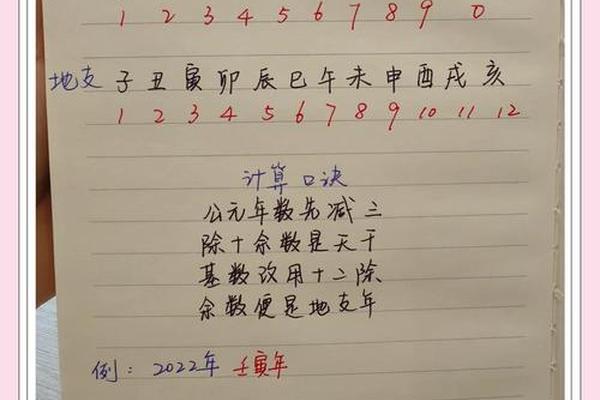 1 2 3 4 5 6 7 8 9 0
地支 子 丑 寅 卯 辰 巳 午 未 申 酉 戌 亥
1 2 3 4 5 6 7 8 9 10 11 12
计算口诀
公元年数先减三
除十余数是天干
基数改用十二除
余数便是地支年
例: 2022年 壬寅年